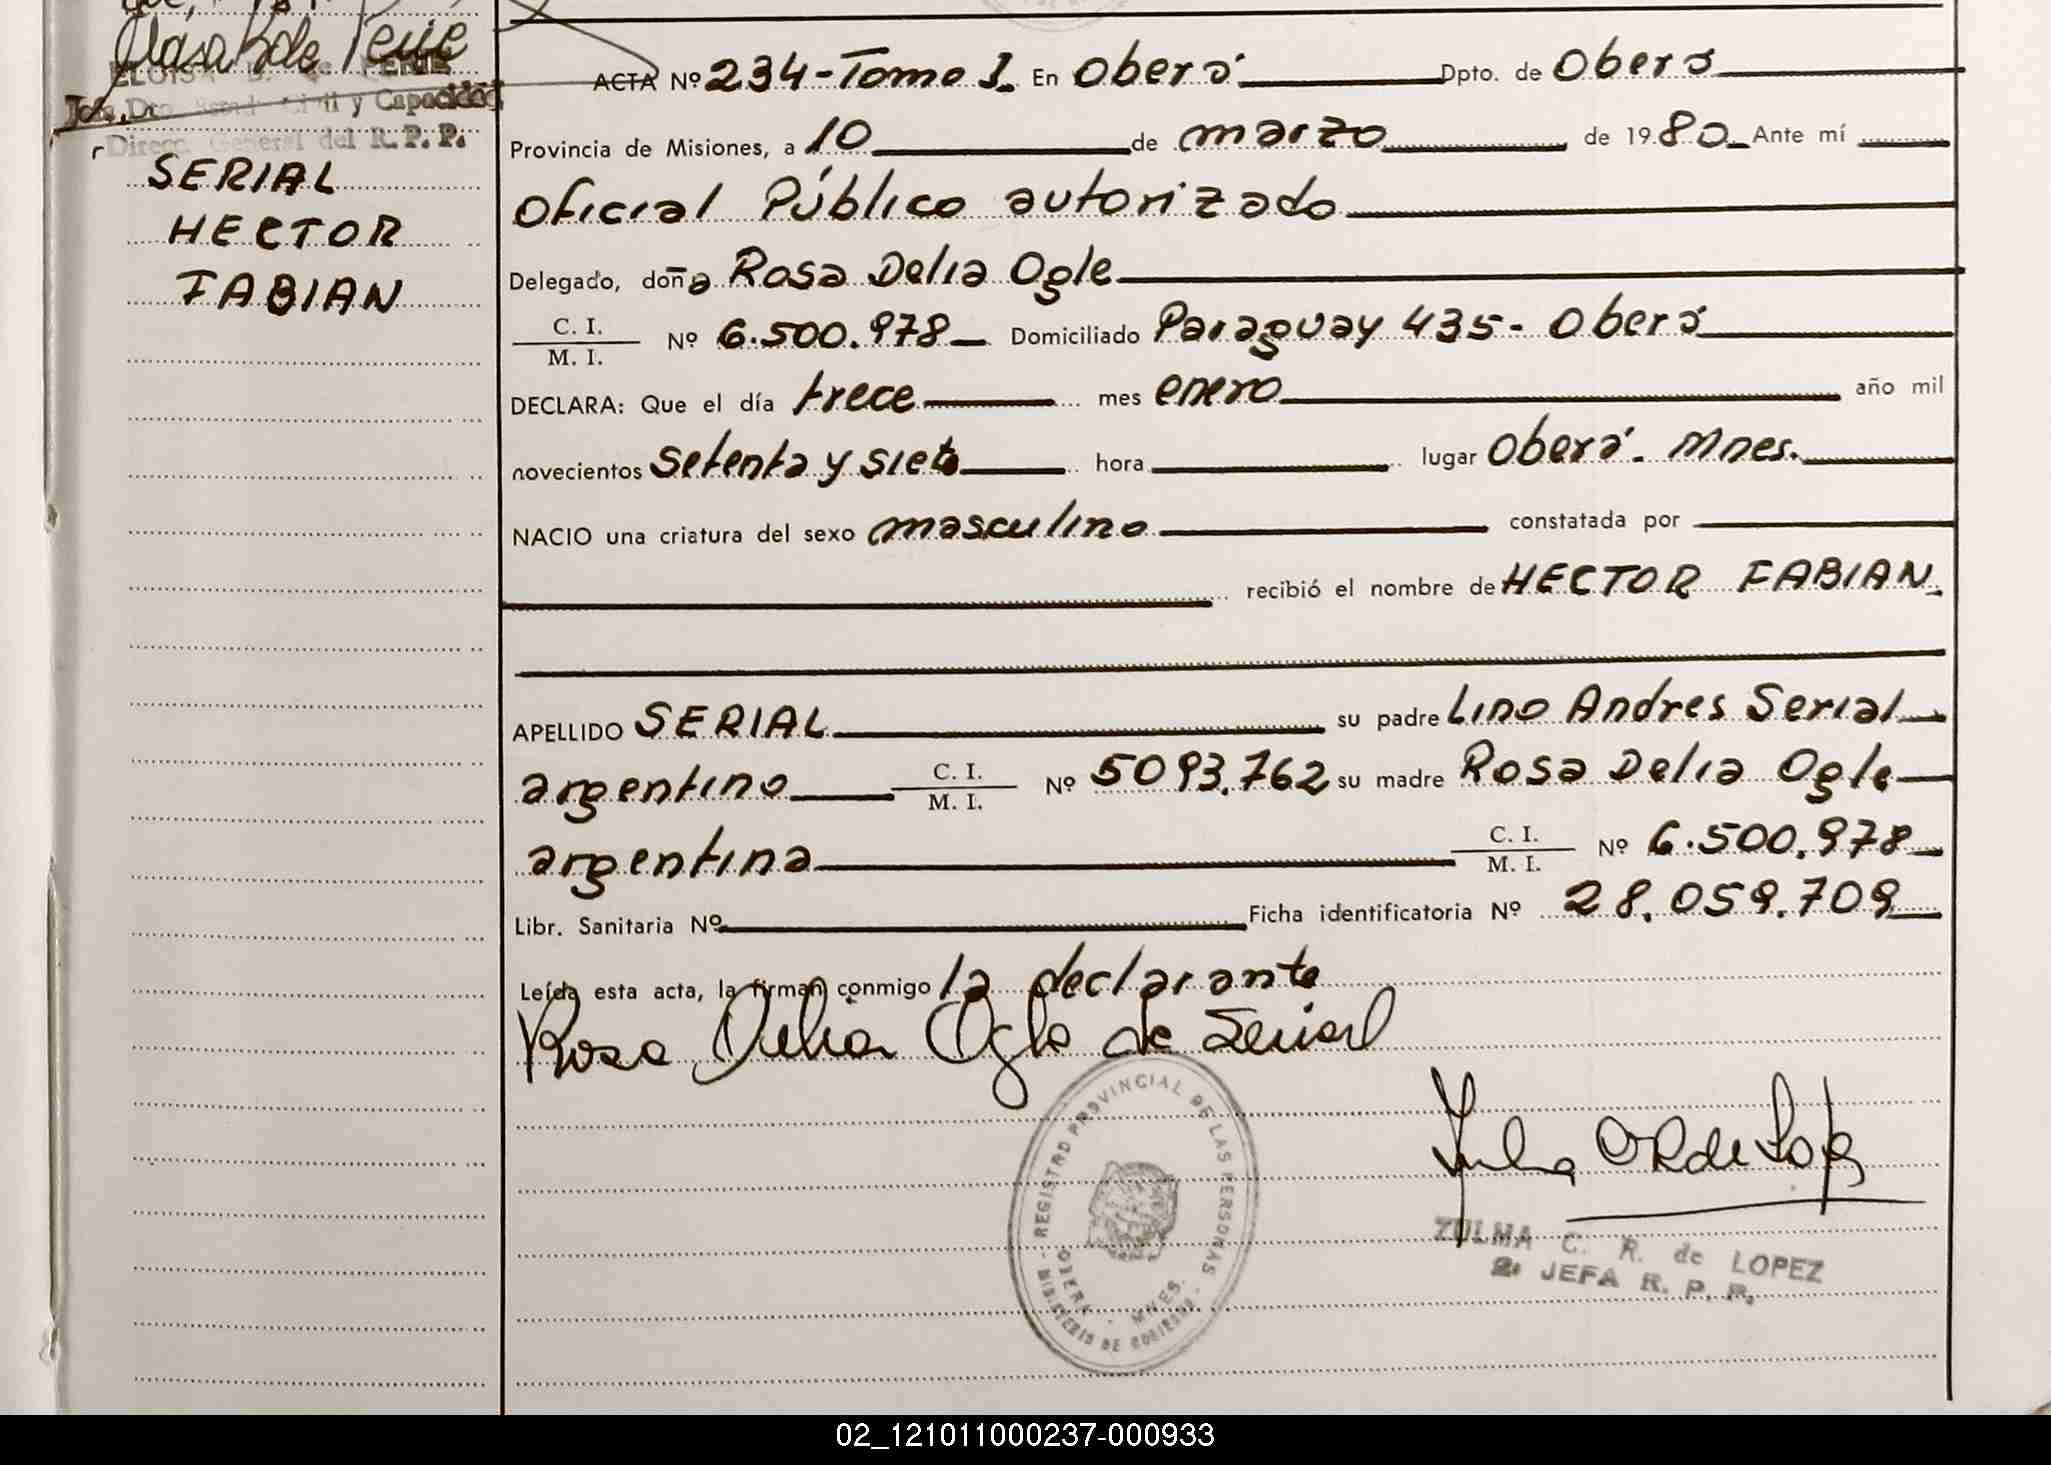 ELOISA B. de PERIE
Jefa Dto. Estado Civil y Capacidad
Direcc. General del R. P. P.
SERIAL
HECTOR
FABIAN
ACTA Nº 234-Tomo I. En Oberá Dpto. de Oberá
Provincia de Misiones, a 10 de marzo de 1980 Ante mí
Oficial Público autorizado
Delegado, doña Rosa Delia Ogle
C. I.
M. I. Nº 6.500.978 Domiciliado Paraguay 435- Oberá
DECLARA: Que el día trece mes enero año mil
novecientos setenta y siete hora lugar Oberá. Mnes.
NACIO una criatura del sexo masculino constatada por
recibió el nombre de HECTOR FABIAN.
APELLIDO SERIAL su padre Lino Andres Serial
argentino C. I.
M. I. Nº 5093.762 su madre Rosa Delia Ogle
argentina C. I.
M. I. Nº 6.500.978
Libr. Sanitaria Nº Ficha identificatoria Nº 28.059.709
Leída esta acta, la firman conmigo la declarante
Rosa Delia Ogle de Serial
REGISTRO PROVINCIAL DE LAS PERSONAS
OBERA - MNES.
MINISTERIO DE GOBIERNO
ZULMA C. R. de LOPEZ
2ª JEFA R. P. P.
02_121011000237-000933